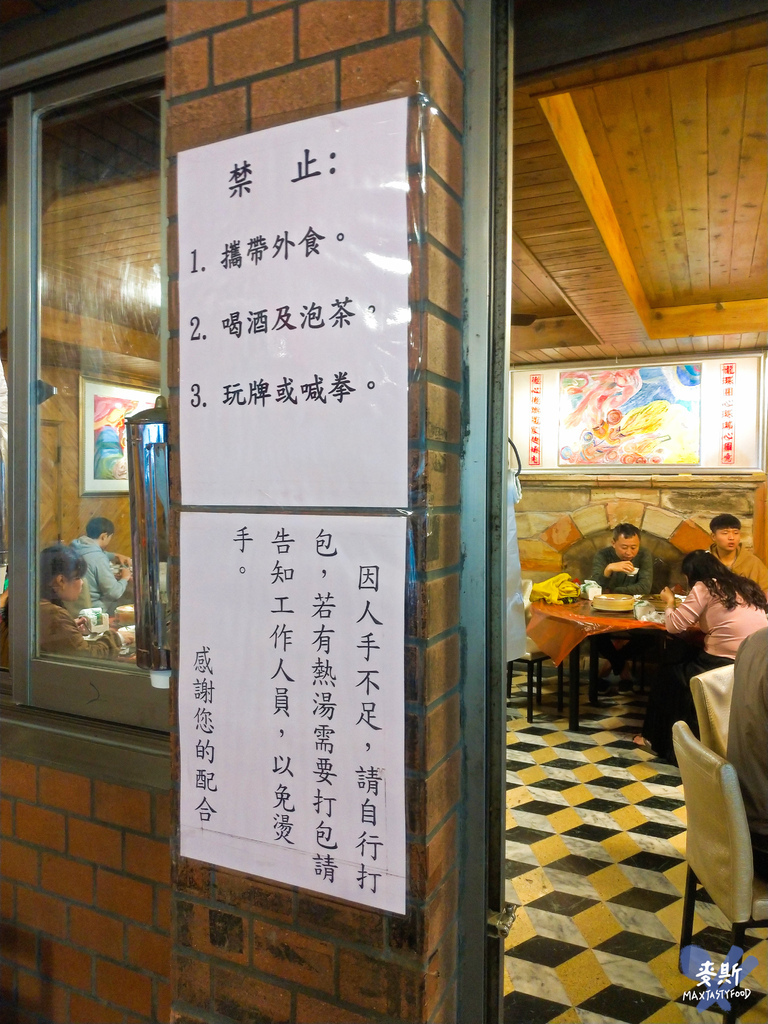 禁 止：
1. 攜帶外食。
2. 喝酒及泡茶。
3. 玩牌或喊拳。
因人手不足，請自行打
包，若有熱湯需要打包請
告知工作人員，以免燙
手。
感謝您的配合
麥斯
MAXTASTYFOOD